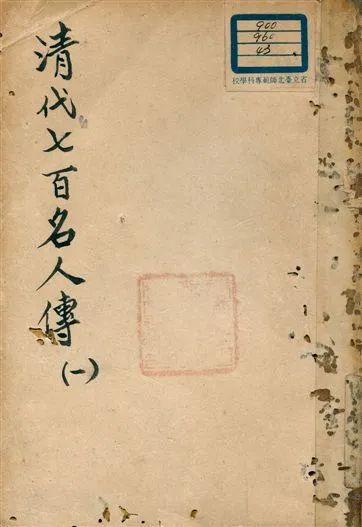 清代七百名人傳
(一)
900
960
43
校學科專範師北臺立省